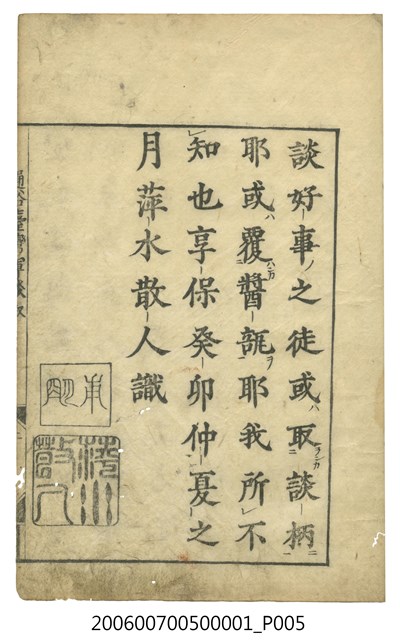 談好事ノ之徒或ハ取ランカ談柄ニ
耶或ハ覆ハンカ醬瓿ヲ耶我所不
知也享保癸卯仲夏之
月萍水散人識
200600700500001_P005